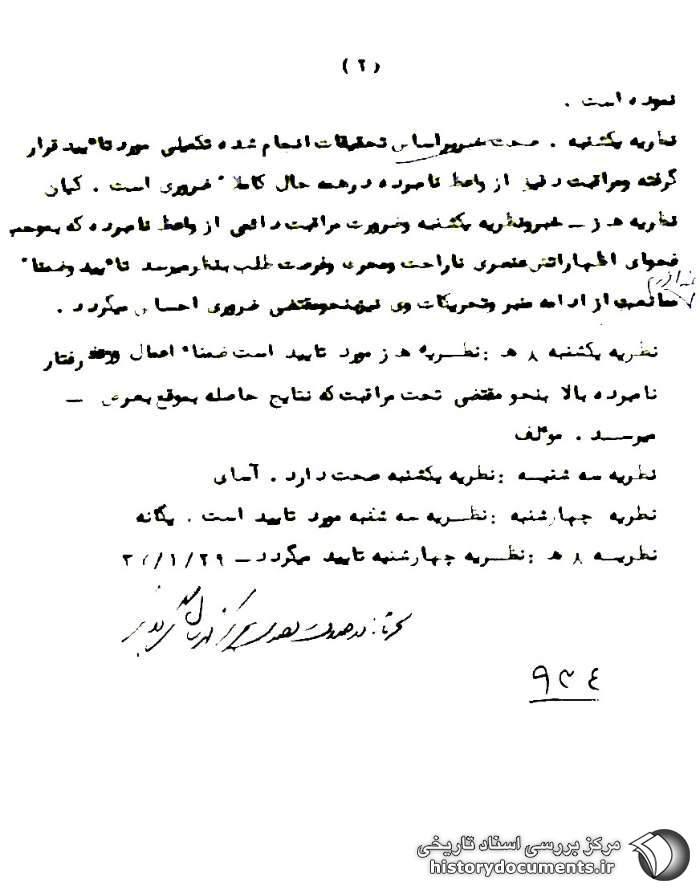 (۲)
نموده است .
نظریه یکشنبه . صحت خبر براساس تحقیقات انجام شده تکمیلی مورد تائید قرار
گرفته ومراقبت دقیق از واعظ نامبرده درهمه حال کاملا" ضروری است . کیان
نظریه هـ ز ـ خبرونظریه یکشنبه وضرورت مراقبت دائمی از واعظ نامبرده که بموجب
فحوای اظهاراتش عنصری ناراحت ومجری وفرصت طلب بنظر میرسد تائید وضمنا"
ممانعت از ادامه منبر وتحریکات وی نیزبنحومقتضی ضروری احساس میگردد .
نظریه یکشنبه ۸ هـ : نظریه هـ ز مورد تایید است ضمنا" اعمال و رفتار
نامبرده بالا بنحو مقتضی تحت مراقبت که نتایج حاصله بموقع بعرض ـ
میرسد . موئلف
نظریه سه شنبه : نظریه یکشنبه صحت دارد . آسای
نظریه چهارشنبه : نظریه سه شنبه مورد تایید است . یگانه
نظریه ۸ هـ : نظریه چهارشنبه تایید میگردد ـ ۲۹/۱/
۹۳۴
مرکز بررسی اسناد تاریخی
historydocuments.ir